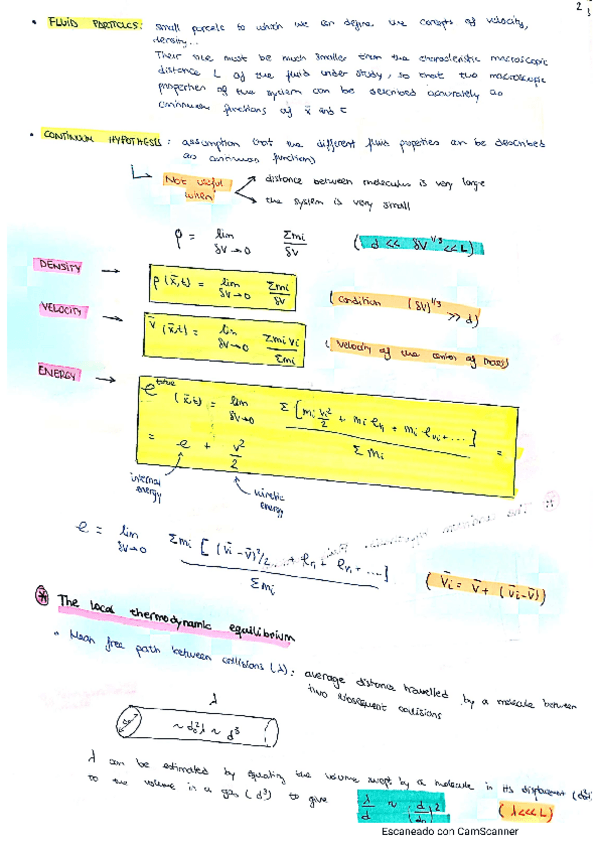 2
• FLUID PARTICLES: small parcels to which we can define the concepts of velocity,
density...
Their size must be much smaller than the characteristic macroscopic
distance L of the fluid under study, so that the macroscopic
properties of the system can be described accurately as
continuous functions of x̄ and t
• CONTINUUM HYPOTHESIS: assumption that the different fluid properties can be described
as continuous function)
Not useful when → distance between molecules is very large
→ the system is very small
ρ = lim δV→0 Σmi/δV (d << δV^1/3 << L)
DENSITY → ρ(x̄,t) = lim δV→0 Σmi/δV (condition (δV)^1/3 >> d)
VELOCITY → v̄(x̄,t) = lim δV→0 Σmivi/Σmi (velocity of the center of mass)
ENERGY → e (x̄,t) = lim δV→0 Σ[mi vi²/2 + mi eri + mi evi + ...]/Σmi =
= e + v²/2
internal energy kinetic energy
e = lim δV→0 Σmi [(v̄i-v̄)²/2 + eri + evi + ...]/Σmi (v̄i = v̄ + (v̄i-v̄))
The local thermodynamic equilibrium
" Mean free path between collisions (λ): average distance travelled by a molecule between
two subsequent collisions
λ
~ d₀²λ ~ d³
λ can be estimated by equating the volume swept by a molecule in its displacement
to the volume in a gas (d³) to give λ/d ~ (d/d₀)² (λ<<<L)
Escaneado con CamScanner